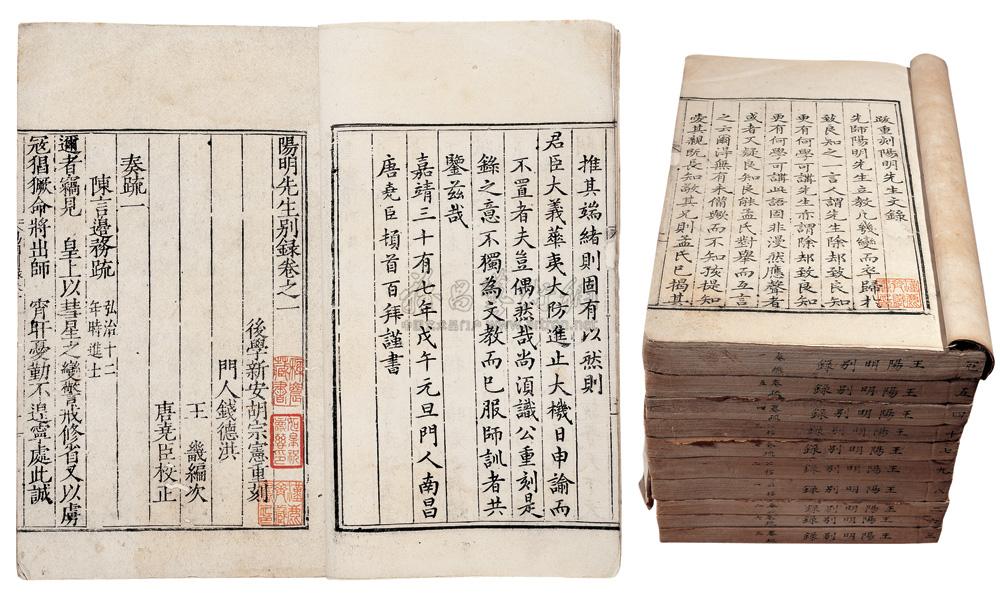 推其端緒則固有以然則
君臣大義華夷大防進止大機日申諭而
不置者夫豈偶然哉尚湏識公重刻是
錄之意不獨為文教而已服師訓者共
鑒兹哉
嘉靖三十有七年戊午元旦門人南昌
唐堯臣頓首百拜謹書
陽明先生別録卷之一
後學新安胡宗憲重刻
門人錢德洪
王畿編次
唐堯臣校正
奏疏一
陳言邊務疏 弘治十二年時進士
邇者竊見 皇上以彗星之變警戒修省又以虜
寇猖獗命將出師 宵旰憂勤不遑寧處此誠
跋重刻陽明先生文錄
先師陽明先生立教凡幾變而卒歸於
致良知之一言人謂先生除却致良知
更有何學可講先生亦謂除却致良知
更有何學可講此語固非漫然應聲者
或者又疑良知良能孟氏對舉而互言
之云爾浔無有未備歟而不知孩提知
愛其親既長知敬其兄則孟氏已揭其
王陽明別錄
王陽明別錄
王陽明別錄
王陽明別錄
王陽明別錄
王陽明別錄
王陽明別錄
王陽明別錄
王陽明別錄